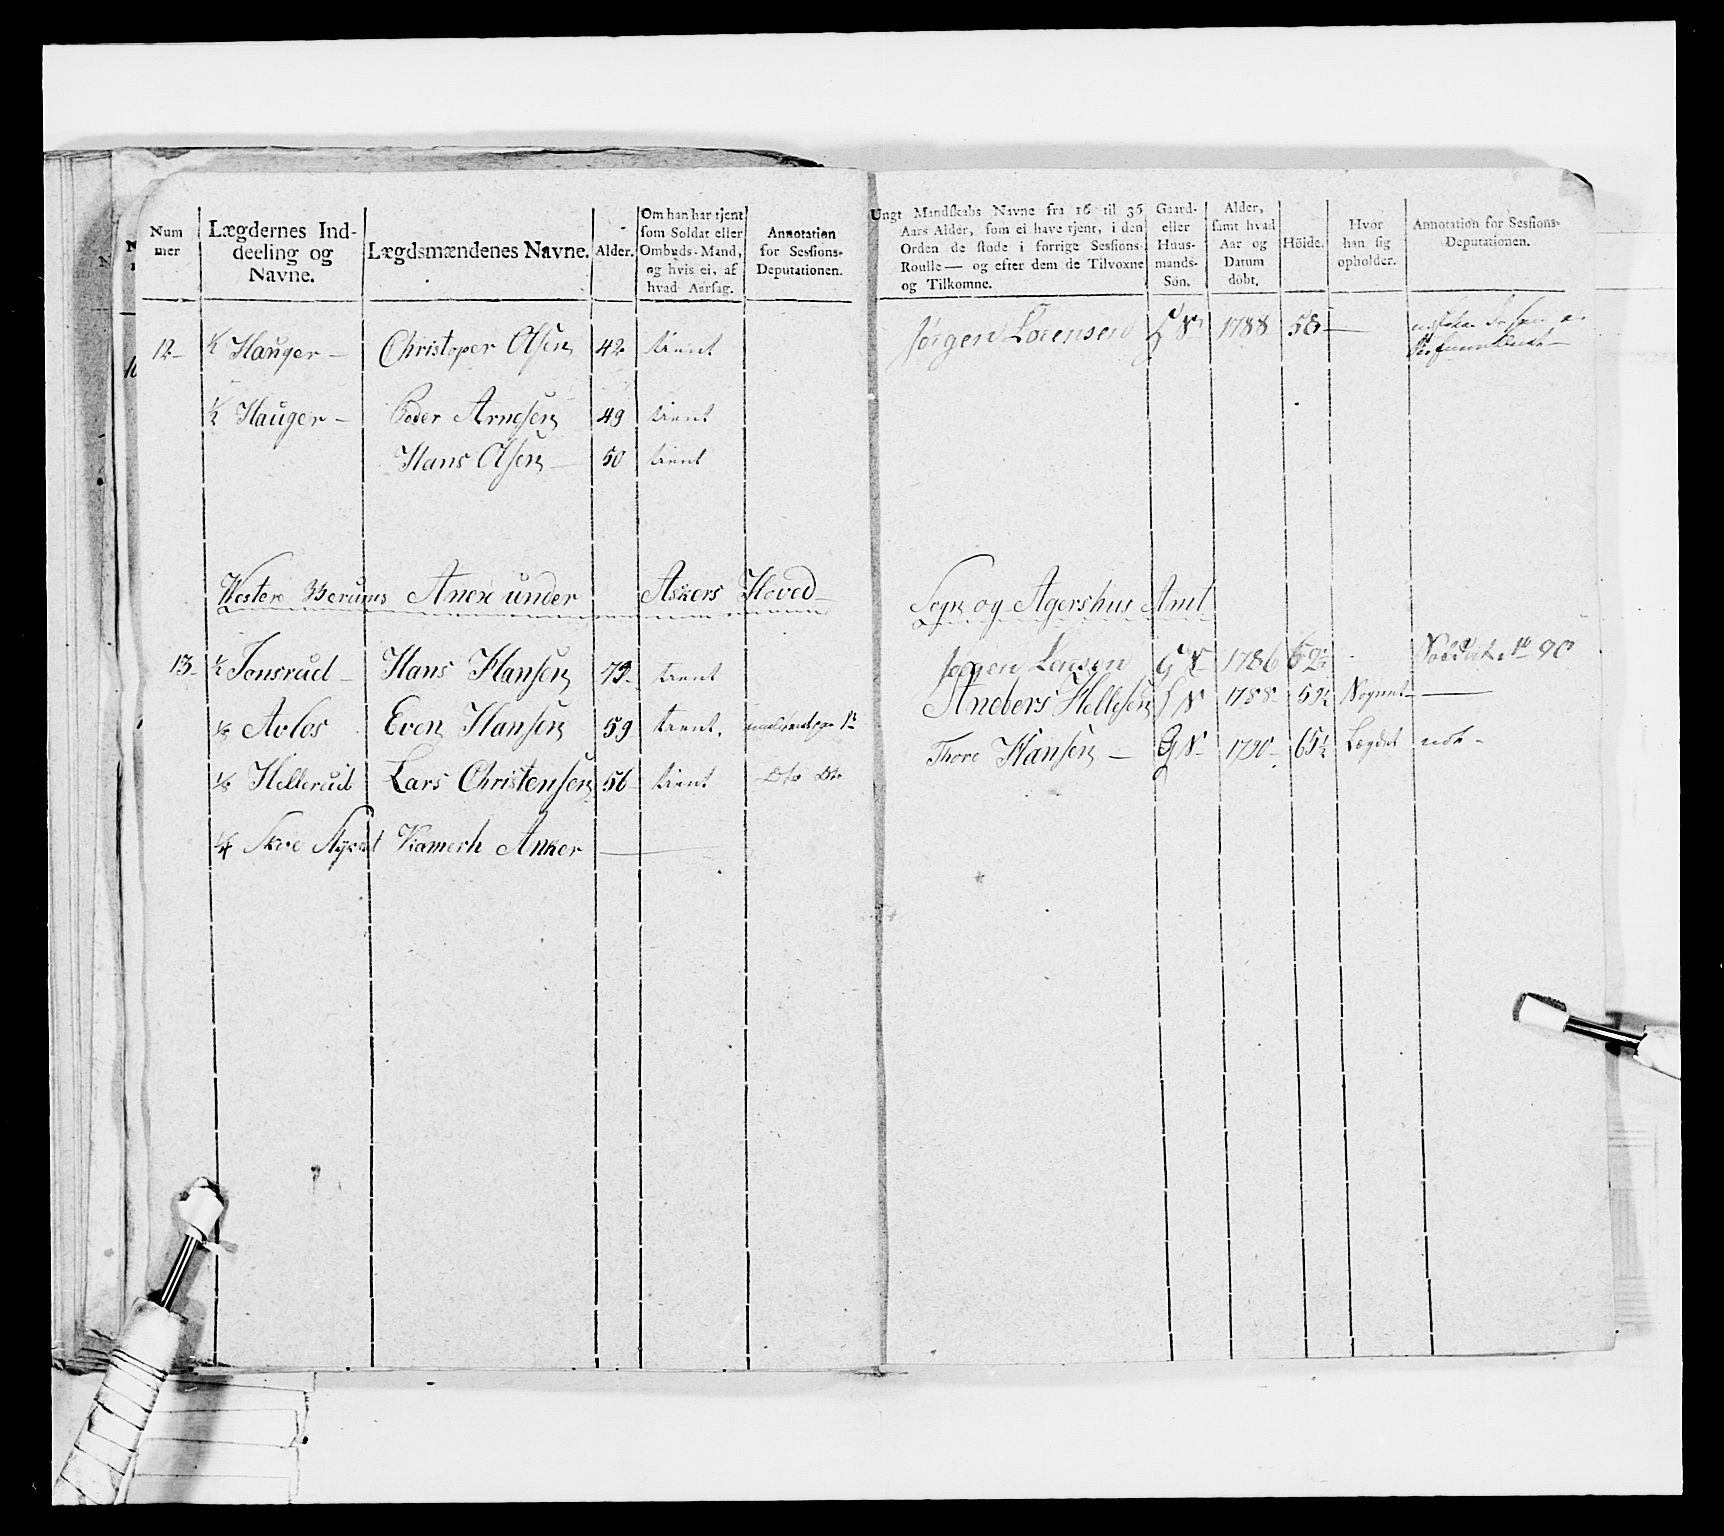 Num mer
Lægdernes Inddeeling og Navne.
Lægdsmændenes Navne.
Alder.
Om han har tjent som Soldat eller Ombuds-Mand, og hvis ei, af hvad Aarsag.
Annotation for Sessions-Deputationen.
Ungt Mandskabs Navne fra 16 til 36 Aars Alder, som ei have tjent, i den Orden de stode i forrige Sessions-Roulle — og efter dem de Tilvoxne og Tilkomne.
Gaard- eller Huusmands-Sön.
Alder, samt hvad Aar og Datum döbt.
Höide.
Hvor han sig opholder.
Annotation for Sessions-Deputationen.
12 ½ Hauger Christoper Olsen 42 tient Jörgen Lorensen 1788 58
½ Hauger Peder Arnesen 49 tient
Hans Olsen 50 tient
Westere Berums Anex under Askers Hoved Sogn og Agershus Amt
13 ½ Jonsrud Hans Hansen 72 tient Jörgen Larsen GS 1786 62½
Anders Hellesen 1788 59½ Sognet
⅛ Avlos Even Hansen 59 tient
Thore Hansen GS 1790 65½ Lægdet
⅛ Hellerud Lars Christensen 56 tient Dto Dto
¼ Kamerh Anker